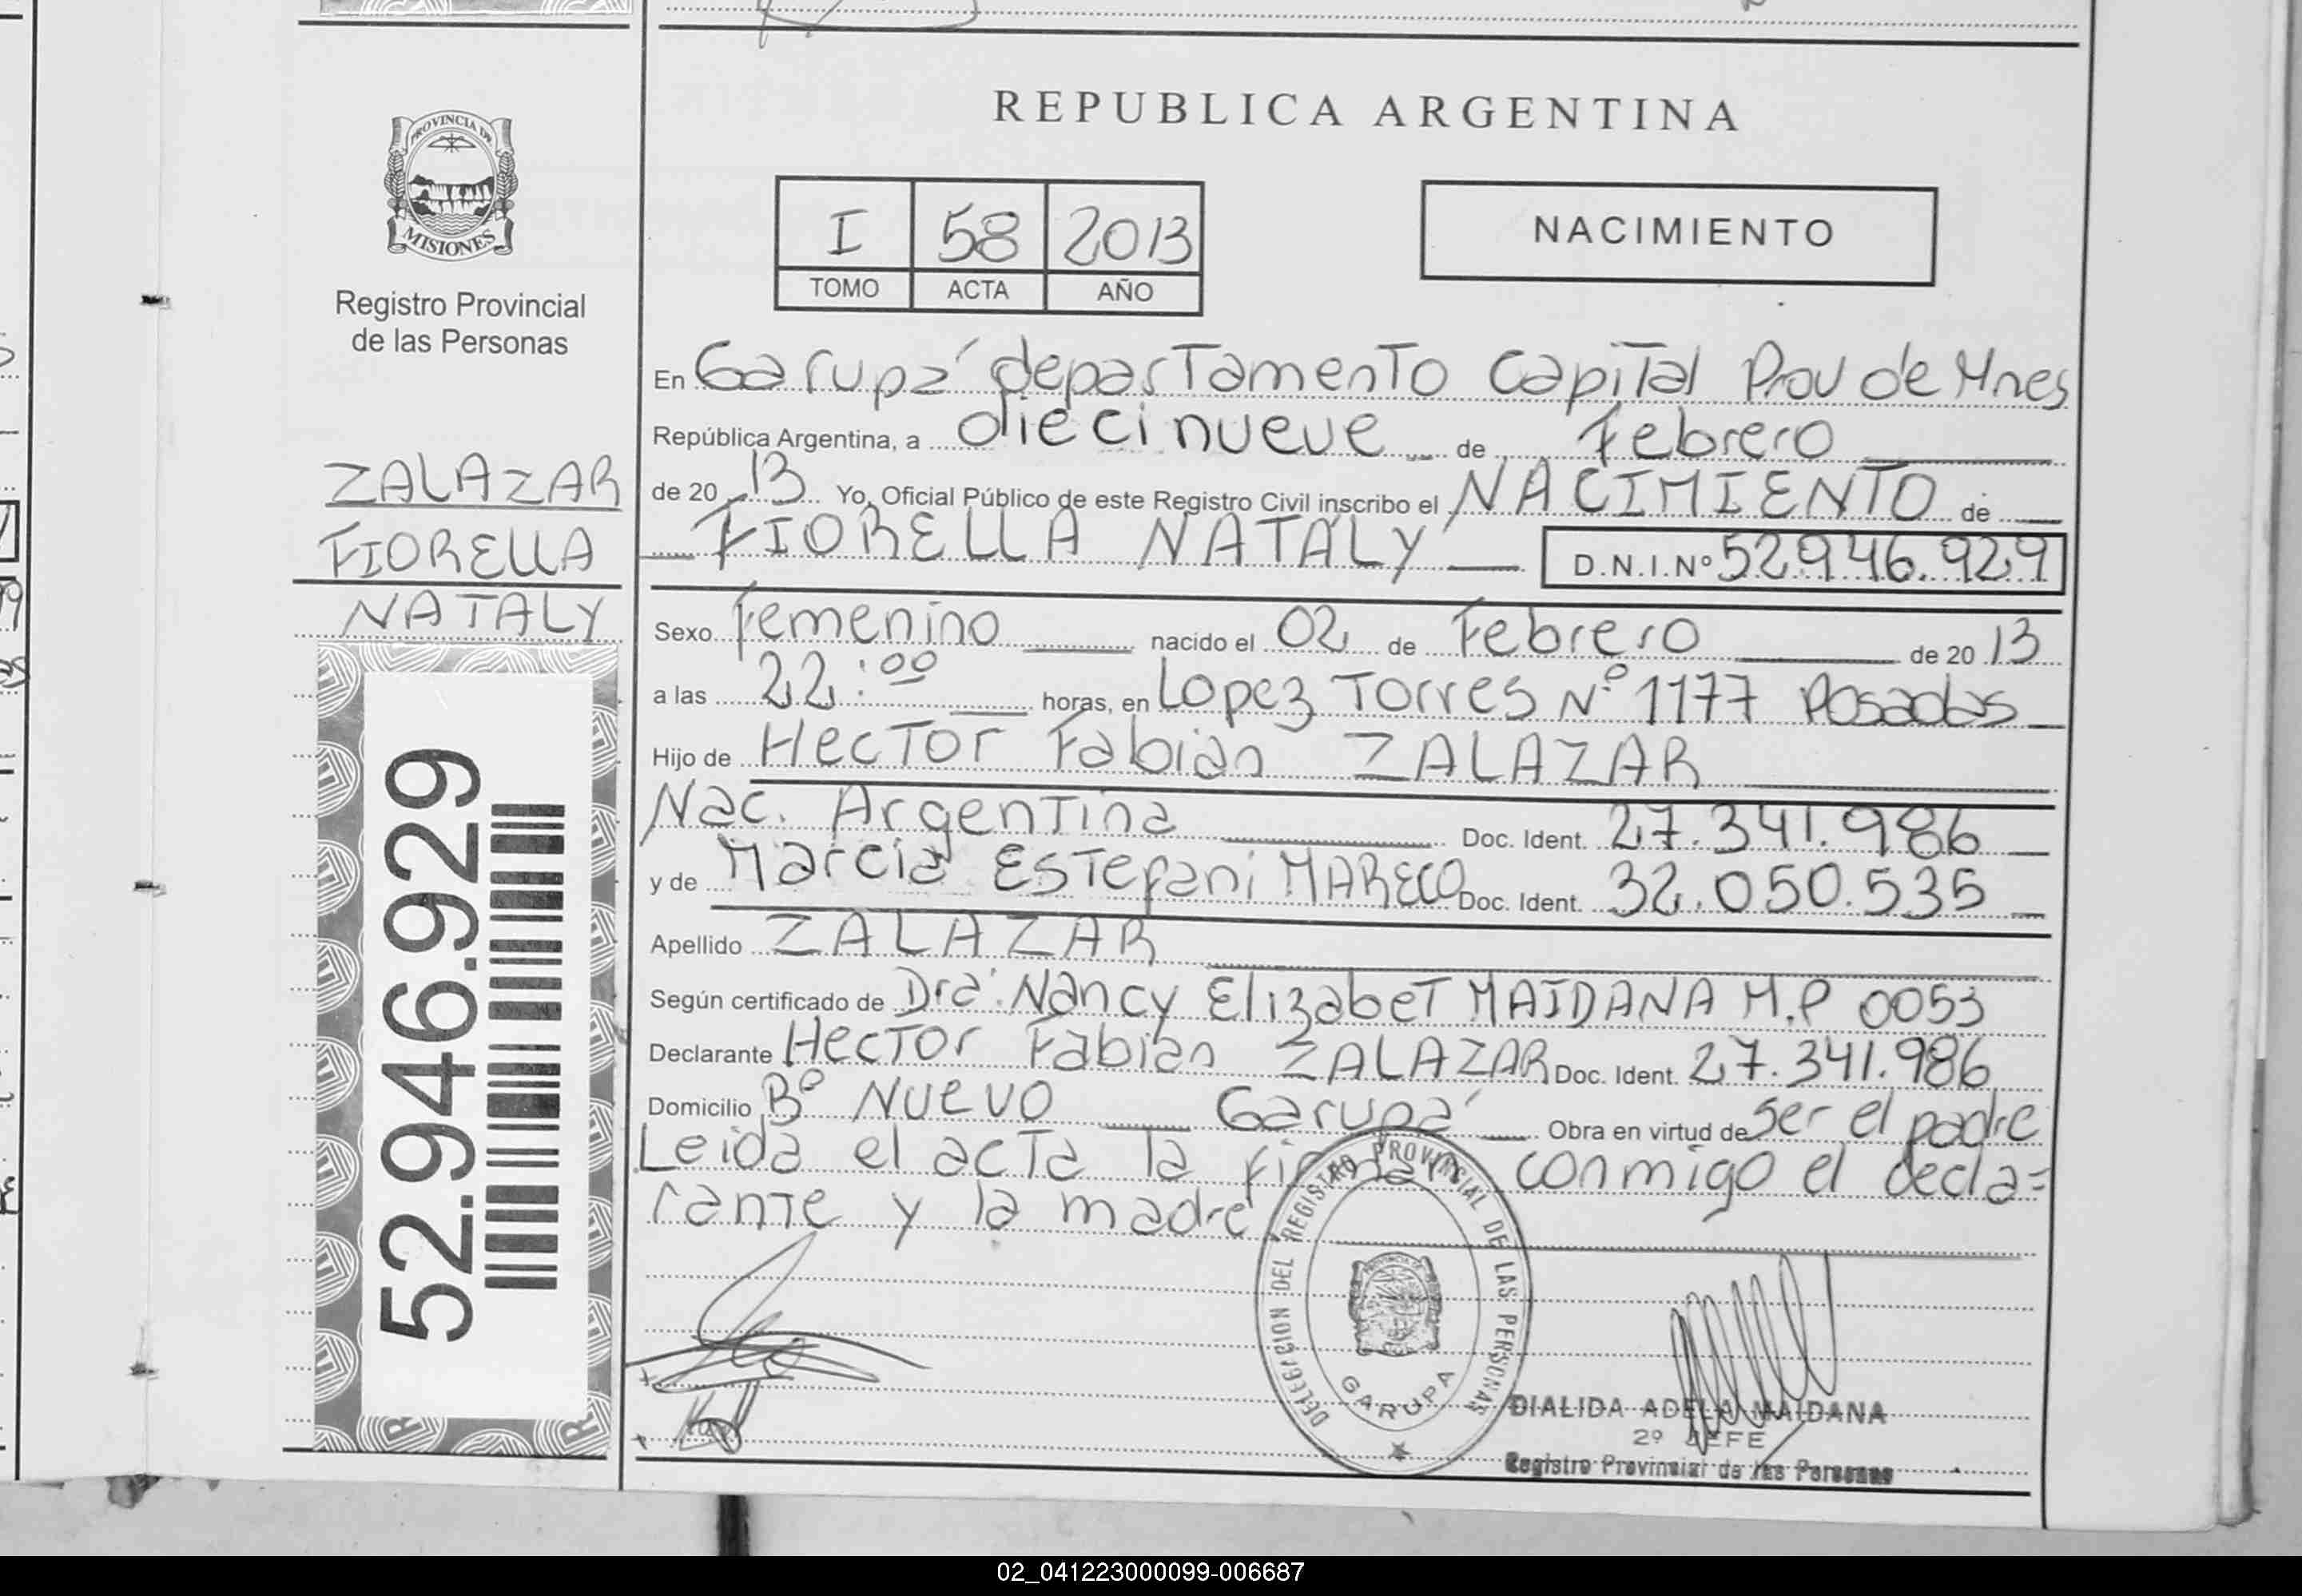 REPUBLICA ARGENTINA
PROVINCIA DE
MISIONES
Registro Provincial
de las Personas
I 58 2013
TOMO ACTA AÑO
NACIMIENTO
En Garupá departamento Capital Prov de Mnes
República Argentina, a diecinueve de Febrero
de 20 13 Yo, Oficial Público de este Registro Civil inscribo el NACIMIENTO de
FIORELLA NATALY D.N.I.Nº 52.946.929
ZALAZAR
FIORELLA
NATALY
52.946.929
Sexo Femenino nacido el 02 de Febrero de 20 13
a las 22:00 horas, en Lopez Torres Nº 1177 Posadas
Hijo de Hector Fabian ZALAZAR
Nac. Argentina Doc. Ident. 27.341.986
y de Marcia Estefani MARECO Doc. Ident. 32.050.535
Apellido ZALAZAR
Según certificado de Dra. Nancy Elizabet MAIDANA M.P 0053
Declarante Hector Fabian ZALAZAR Doc. Ident. 27.341.986
Domicilio Bº Nuevo Garupá Obra en virtud de ser el padre
Leida el acta la firman conmigo el decla=
rante y la madre
DELEGACION DEL REGISTRO PROVINCIAL DE LAS PERSONAS
GARUPA
DIALIDA ADELA MAIDANA
2º JEFE
Registro Provincial de las Personas
02_041223000099-006687